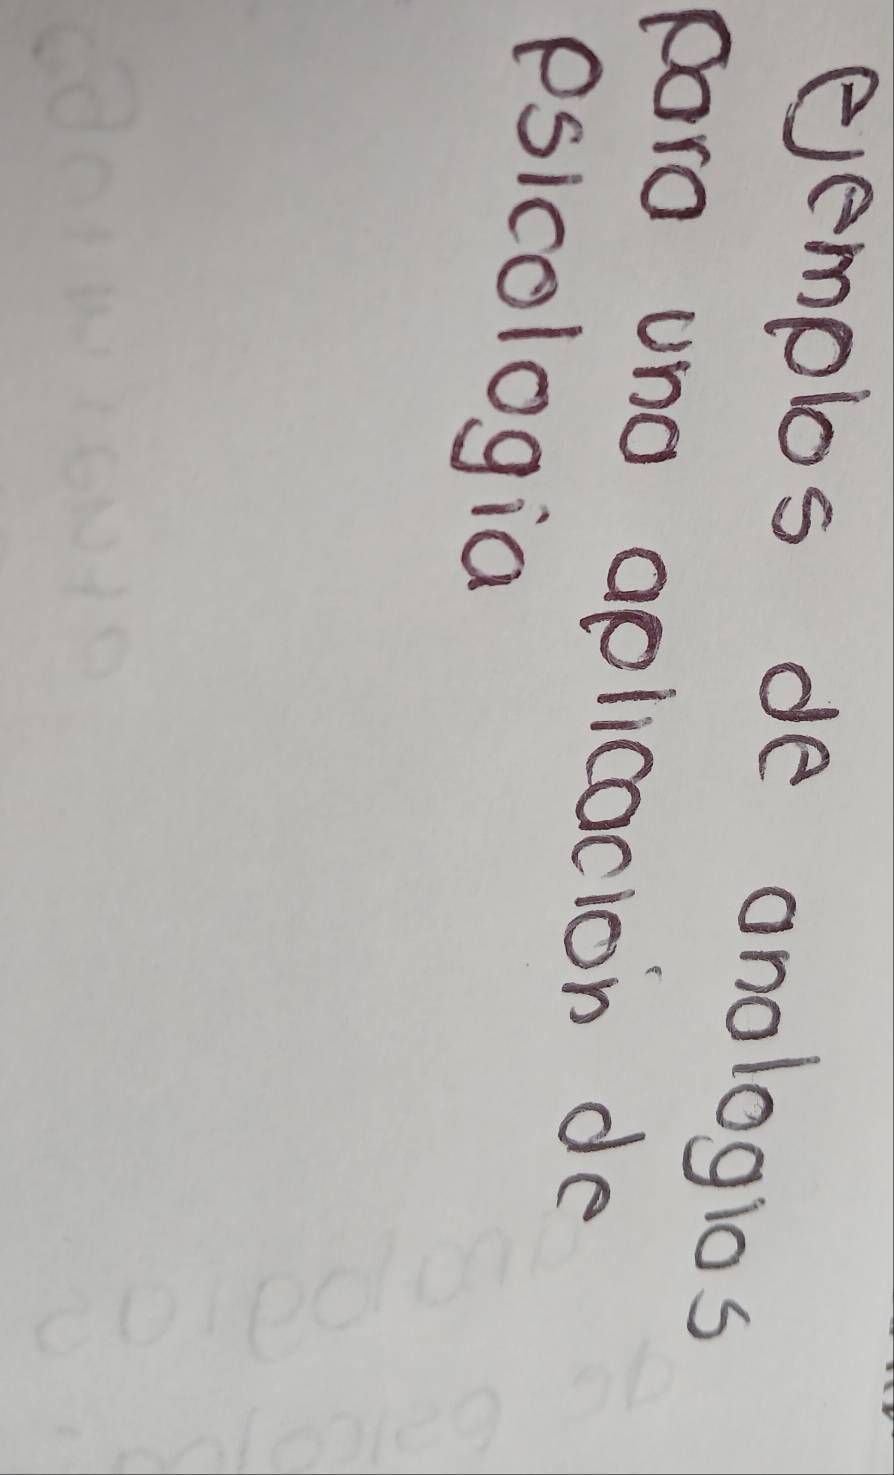 ejemplos de analogias
para una aplicación de
psicologia